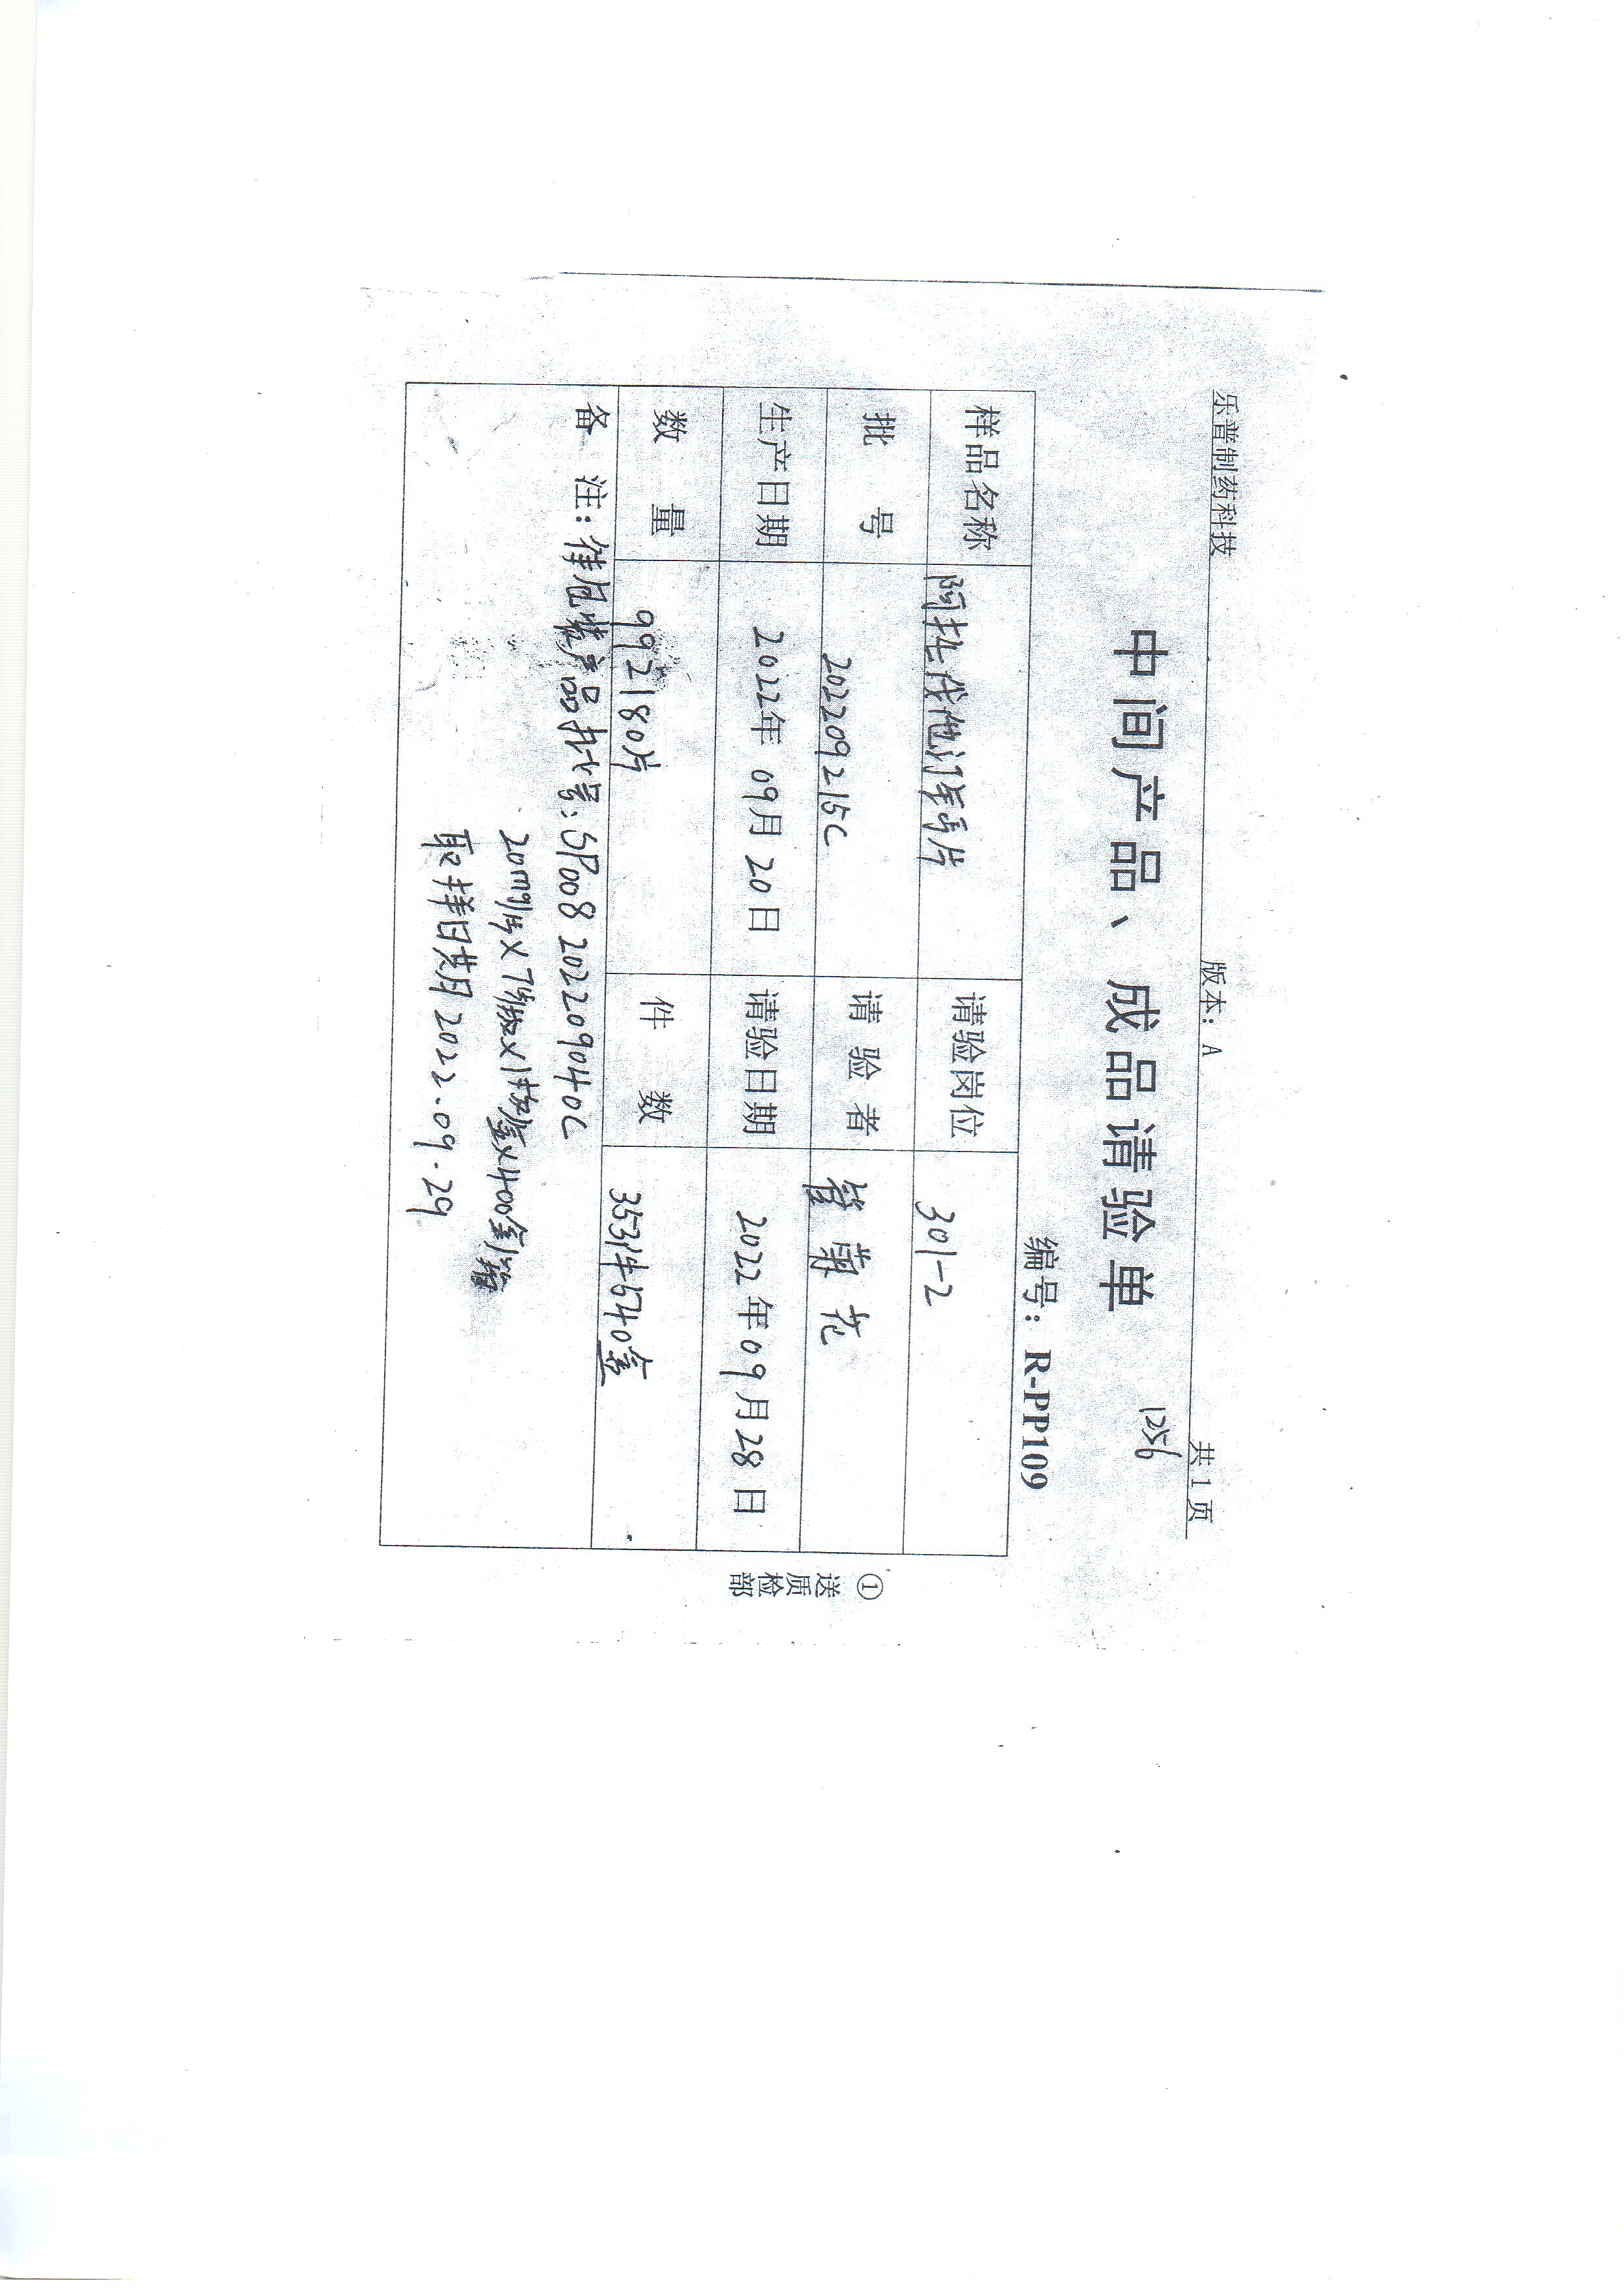 乐普制药科技 版本：A 共1页
1256
中间产品、成品请验单
编号：R-PP109
样品名称 阿托伐他汀钙片 请验岗位 301-2
批 号 202209215C 请验者 管菊花
生产日期 2022年09月20日 请验日期 2022年09月28日
数 量 992180片 件 数 353件540盒
备 注：待包装产品批号：SP008 202209040C
20mg/片×7片/板×1板/盒×400盒/箱
取样日期 2022.09.29
① 送质检部